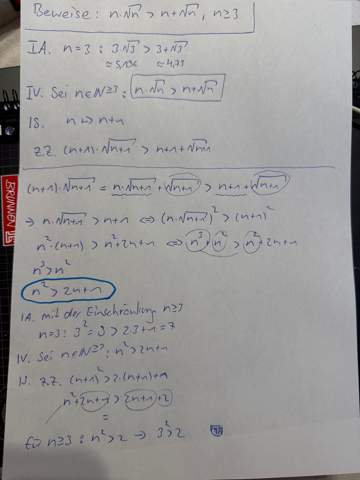 Beweise: n·√n > n+√n, n≥3
IA. n=3: 3·√3 > 3+√3
≈5,196 ≈4,73
IV. Sei n∈ℕ≥3: n·√n > n+√n
IS. n ↦ n+1
z.Z. (n+1)·√n+1 > n+1+√n+1
(n+1)·√n+1 = n·√n+1 + √n+1 > n+1+√n+1
→ n·√n+1 > n+1 ⇔ (n·√n+1)² > (n+1)²
n²·(n+1) > n²+2n+1 ⇔ n³+n² > n²+2n+1
n³>n²
n²>2n+1
IA. mit der Einschränkung n≥3
n=3: 3²=9 > 2·3+1=7
IV. Sei n∈ℕ≥3: n²>2n+1
IS. z.Z. (n+1)²>2·(n+1)+1
n²+2n+1 > 2n+1+2
=
für n≥3: n²>2 → 3²>2
BRUNNEN